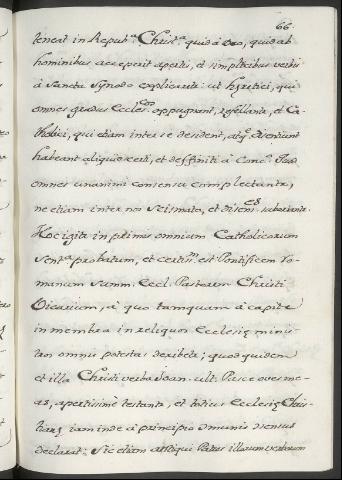 66
teneat in Repub.ª Christ.ª quid à Deo, quid ab
hominibus acceperit apertis, et simplicibus verbis
à Sancta Synodo explicarita: ut hæretici, qui
omnes gradus Eccles.cos oppugnant, refellantr, et Ca-
tholici, qui etiam inter se desident, atq. dissentiunt
habeant aliquid certi, et deffiniti à Conc.º quod
omnes unanimi consensu complectantr,
ne etiam inter nos Scismata, et suboriantr.
Hoc igitr in primis omnium Catholicorum
Sent.ª probatum, et certiss.m est Pontificem Ro-
manum Summ. Eccl. Pastorem Christi
Vicarium, à quo tamquam à capite
in membra in reliquos Ecclesiæ minis-
tros omnis potestas deribetr; quod quidem
et illa Christi verba Joan. ult. Pasce oves me-
as, apertissimè testantr, et totius Ecclesiæ Chris-
tianæ iam inde à principio omnis
declarat: Sic etiam Patres illorum verborum